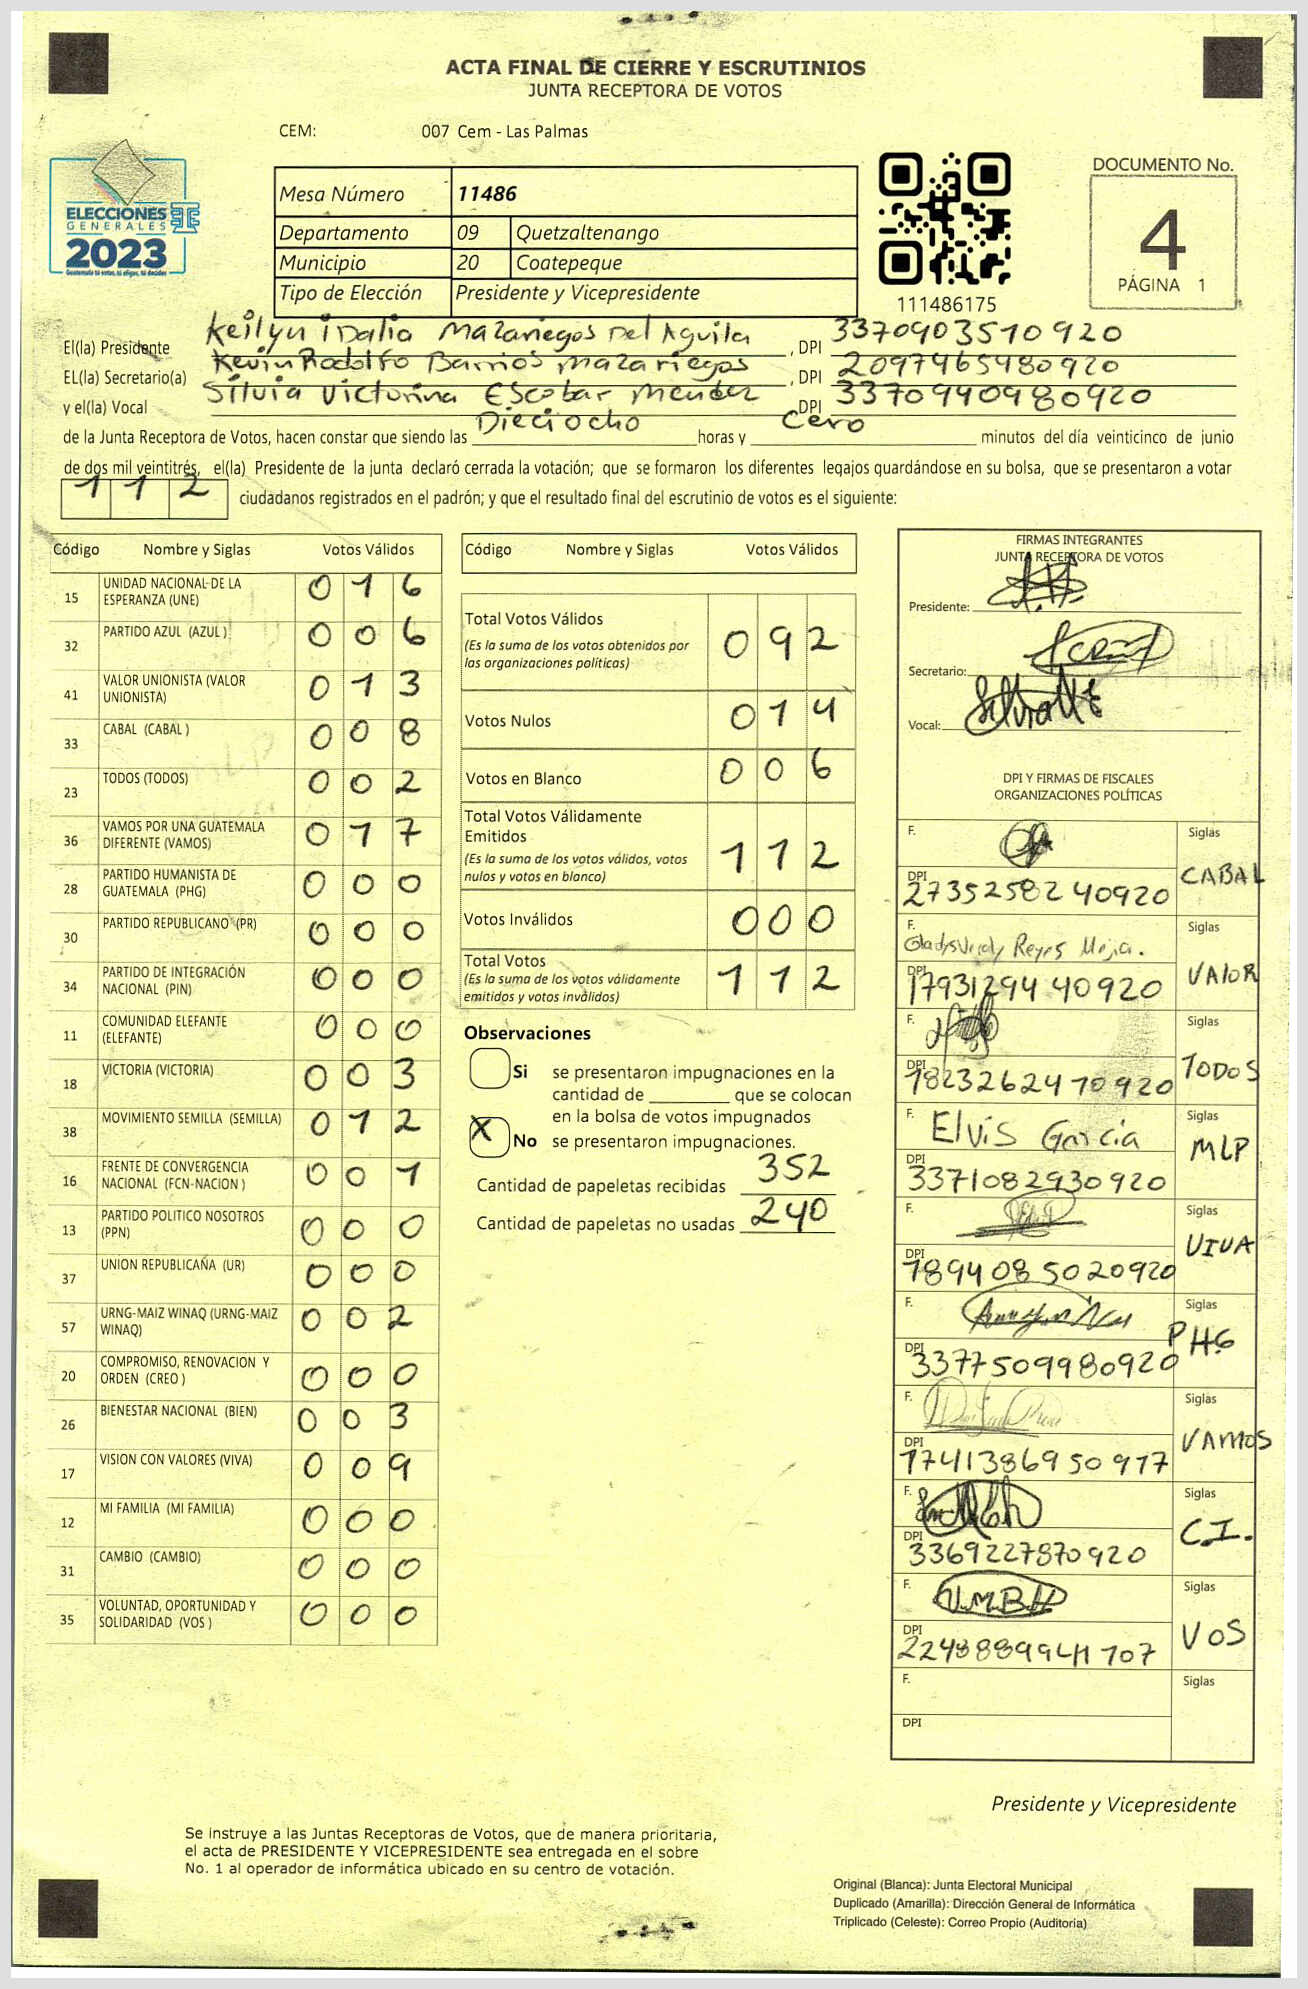 ACTA FINAL DE CIERRE Y ESCRUTINIOS
JUNTA RECEPTORA DE VOTOS
CEM: 007 Cem - Las Palmas
ELECCIONES
GENERALES
2023
Guatemala tú votas, tú eliges, tú decides
Mesa Número 11486
Departamento 09 Quetzaltenango
Municipio 20 Coatepeque
Tipo de Elección Presidente y Vicepresidente
111486175
DOCUMENTO No.
4
PÁGINA 1
El(la) Presidente Keilyn iDalia Mazariegos Del Aguila, DPI 3370903510920
EL(la) Secretario(a) Kevin Rodolfo Barrios Mazariegos, DPI 2097465480920
y el(la) Vocal Silvia Victorina Escobar Mendez, DPI 3370940980920
de la Junta Receptora de Votos, hacen constar que siendo las Dieciocho horas y Cero minutos del día veinticinco de junio
de dos mil veintitrés, el(la) Presidente de la junta declaró cerrada la votación; que se formaron los diferentes legajos quardándose en su bolsa, que se presentaron a votar
112 ciudadanos registrados en el padrón; y que el resultado final del escrutinio de votos es el siguiente:
Código Nombre y Siglas Votos Válidos
15 UNIDAD NACIONAL DE LA ESPERANZA (UNE) 016
32 PARTIDO AZUL (AZUL) 006
41 VALOR UNIONISTA (VALOR UNIONISTA) 013
33 CABAL (CABAL) 008
23 TODOS (TODOS) 002
36 VAMOS POR UNA GUATEMALA DIFERENTE (VAMOS) 017
28 PARTIDO HUMANISTA DE GUATEMALA (PHG) 000
30 PARTIDO REPUBLICANO (PR) 000
34 PARTIDO DE INTEGRACIÓN NACIONAL (PIN) 000
11 COMUNIDAD ELEFANTE (ELEFANTE) 000
18 VICTORIA (VICTORIA) 003
38 MOVIMIENTO SEMILLA (SEMILLA) 012
16 FRENTE DE CONVERGENCIA NACIONAL (FCN-NACION) 001
13 PARTIDO POLITICO NOSOTROS (PPN) 000
37 UNION REPUBLICANA (UR) 000
57 URNG-MAIZ WINAQ (URNG-MAIZ WINAQ) 002
20 COMPROMISO, RENOVACION Y ORDEN (CREO) 000
26 BIENESTAR NACIONAL (BIEN) 003
17 VISION CON VALORES (VIVA) 009
12 MI FAMILIA (MI FAMILIA) 000
31 CAMBIO (CAMBIO) 000
35 VOLUNTAD, OPORTUNIDAD Y SOLIDARIDAD (VOS) 000
Código Nombre y Siglas Votos Válidos
Total Votos Válidos 092
(Es la suma de los votos obtenidos por
las organizaciones políticas)
Votos Nulos 014
Votos en Blanco 006
Total Votos Válidamente
Emitidos 112
(Es la suma de los votos válidos, votos
nulos y votos en blanco)
Votos Inválidos 000
Total Votos 112
(Es la suma de los votos válidamente
emitidos y votos inválidos)
Observaciones
Si se presentaron impugnaciones en la
cantidad de ________ que se colocan
en la bolsa de votos impugnados
X No se presentaron impugnaciones.
Cantidad de papeletas recibidas 352
Cantidad de papeletas no usadas 240
FIRMAS INTEGRANTES
JUNTA RECEPTORA DE VOTOS
Presidente:
Secretario:
Vocal:
DPI Y FIRMAS DE FISCALES
ORGANIZACIONES POLÍTICAS
F. Siglas CABAL
DPI 2735258240920
F. Gladys Reyes Mejia. Siglas VALOR
DPI 1793129440920
F. Siglas TODOS
DPI 1823262470920
F. Elvis Garcia Siglas MLP
DPI 3371082930920
F. Siglas VIVA
DPI 1894085020920
F. Siglas PHG
DPI 3377509980920
F. Siglas VAMOS
DPI 1741386950917
F. Siglas C.I.
DPI 3369227870920
F. V.M.B.H Siglas VOS
DPI
F. Siglas
DPI
Presidente y Vicepresidente
Se instruye a las Juntas Receptoras de Votos, que de manera prioritaria,
el acta de PRESIDENTE Y VICEPRESIDENTE sea entregada en el sobre
No. 1 al operador de informática ubicado en su centro de votación.
Original (Blanca): Junta Electoral Municipal
Duplicado (Amarilla): Dirección General de Informática
Triplicado (Celeste): Correo Propio (Auditoria)